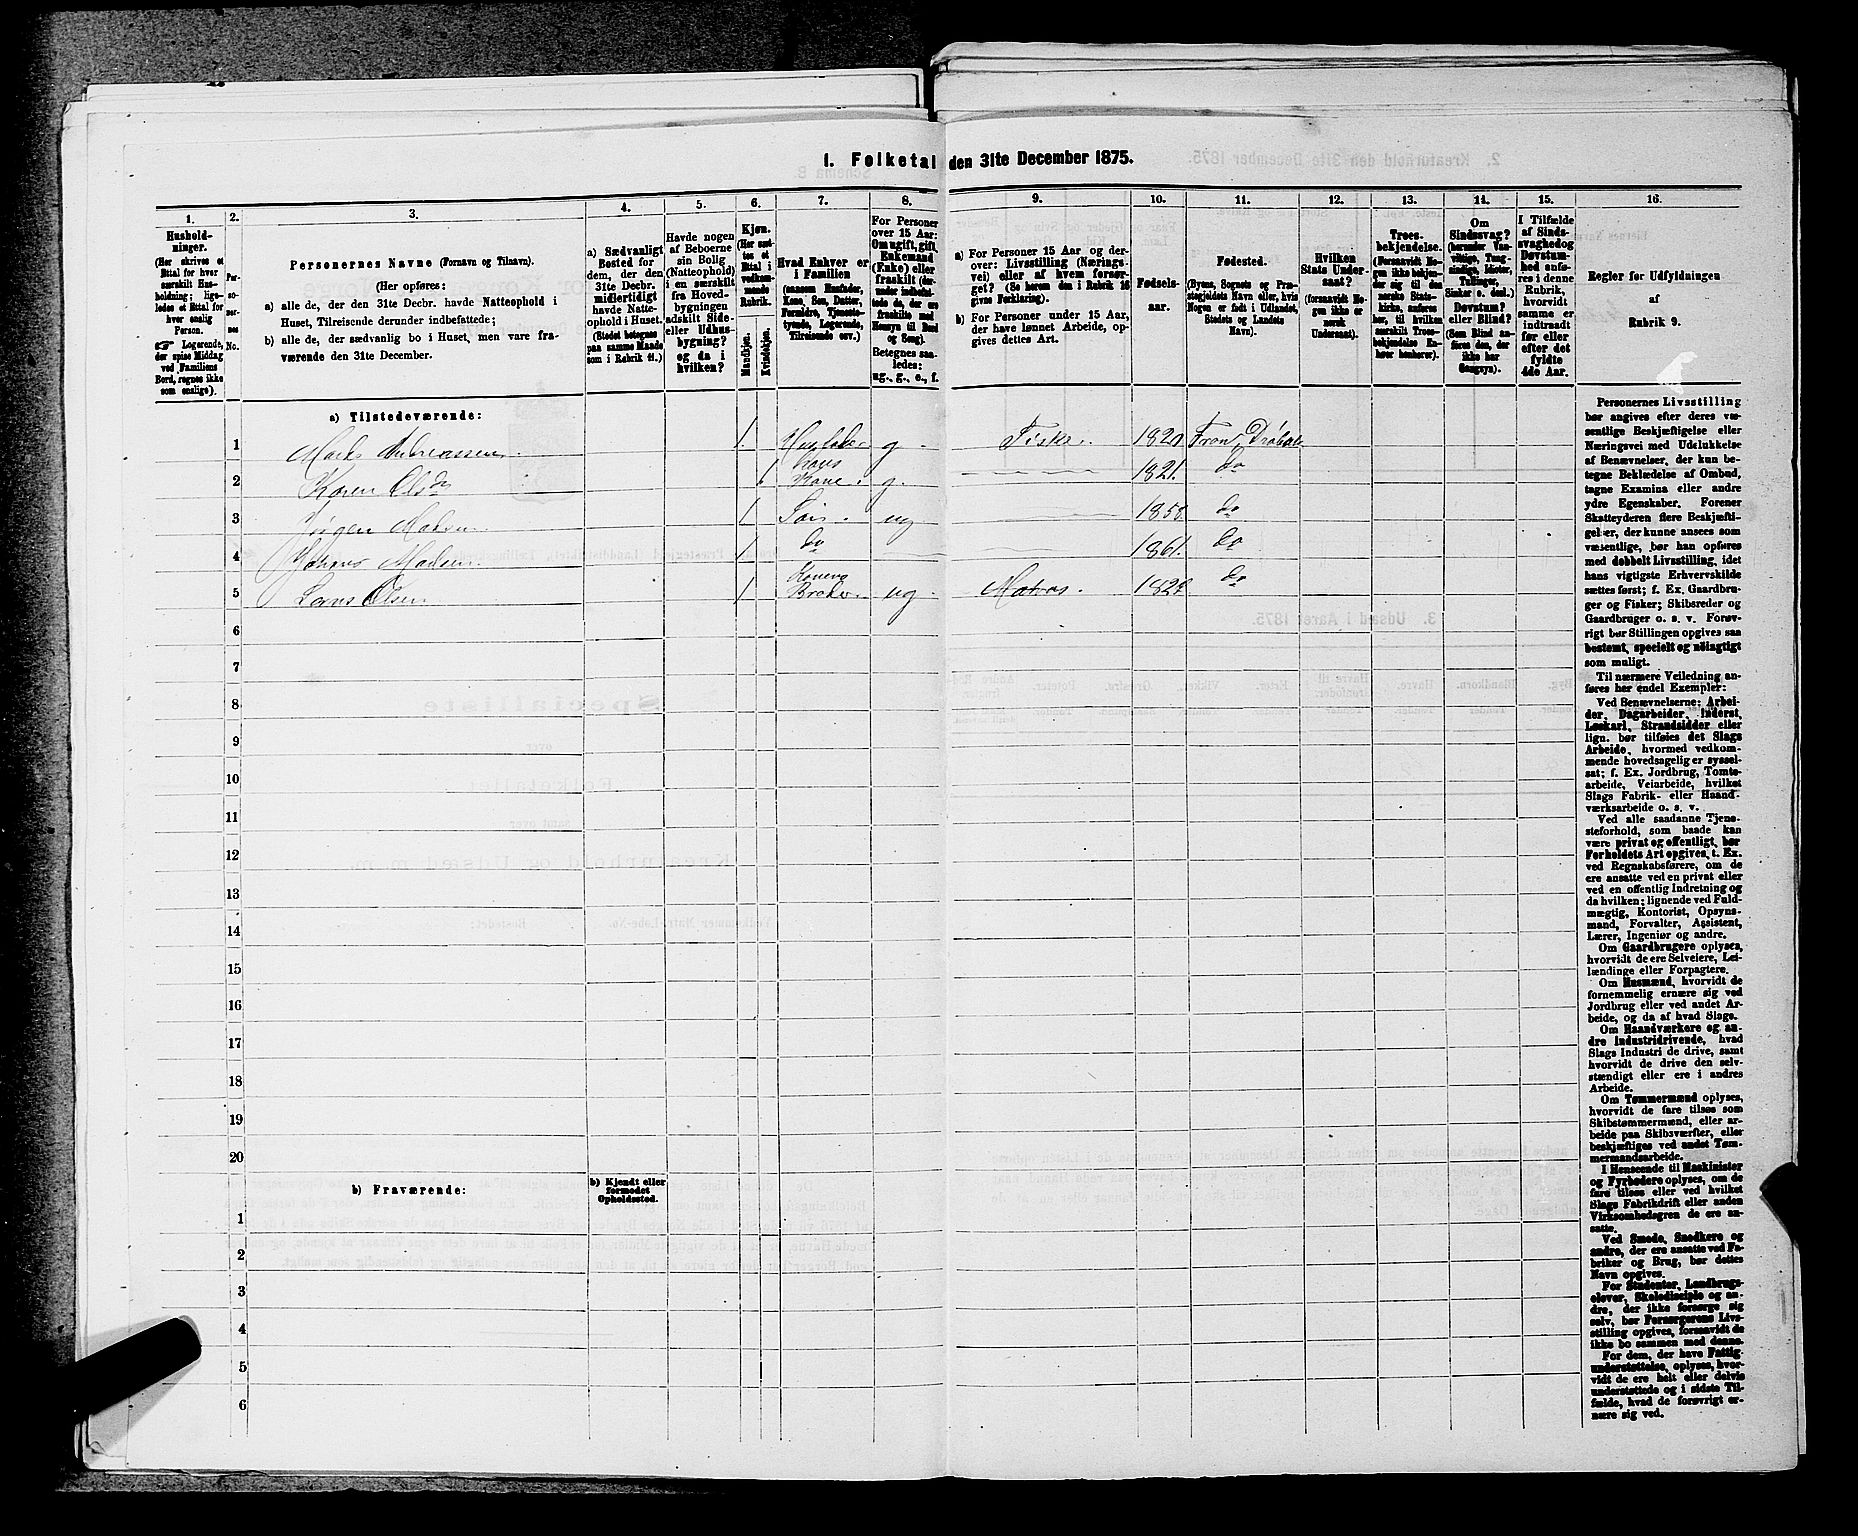 1. Folketal den 31te December 1875.
1.
Hushold-
ninger.
(Her skrives et
Ettal for hver
særskilt Hus-
holdning; lige-
ledes et Ettal for
hver enslig
Person.
☞ Logerende,
der spise Middag
ved Familiens
Bord, regnes ikke
som enslige).
2.
Per-
so-
ner-
nes
No.
3.
Personernes Navne (Fornavn og Tilnavn).
(Her opføres:
a) alle de, der den 31te Decbr. havde Natteophold i
Huset, Tilreisende derunder indbefattede;
b) alle de, der sædvanlig bo i Huset, men vare fra-
værende den 31te December.
4.
a) Sædvanligt
Bosted for
dem, der den
31te Decbr.
midlertidigt
havde Natte-
ophold i Huset.
(Stedet betegnes
paa samme Maade
som i Rubrik 11.)
5.
Havde nogen
af Beboerne
sin Bolig
(Natteophold)
i en særskilt
fra Hoved-
bygningen
adskilt Side-
eller Udhus-
bygning?
og da i
hvilken?
6.
Kjøn.
(Her sæt-
tes et
Ettal i
vedkom-
mende
Rubrik.
Mandkjøn.
Kvindekjøn.
7.
Hvad Enhver er
i Familien
(saasom Husfader,
Kone, Søn, Datter,
Forældre, Tjeneste-
tyende, Logerende,
Tilreisende osv.)
8.
For Personer
over 15 Aar:
Om ugift, gift,
Enkemand
(Enke) eller
fraskilt (der-
under indbefat-
tede de, der ere
fraskilte med
Hensyn til Bord
og Seng).
Betegnes saa-
ledes:
ug., g., e., f.
9.
a) For Personer 15 Aar og der-
over: Livsstilling (Nærings-
vei) eller af hvem forsør-
get? (Se herom den i Rubrik 16
givne Forklaring).
b) For Personer under 15 Aar,
der have lønnet Arbeide, op-
gives dettes Art.
10.
Fødsels-
aar.
11.
Fødested.
(Byens, Sognets og Præ-
stegjeldets Navn eller, hvis
Nogen er født i Udlandet,
Stedets og Landets
Navn).
12.
Hvilken
Stats Under-
saat?
(forsaavidt No-
gen ikke er
norsk
Undersaat).
13.
Troes-
bekjendelse.
(Forsaavidt No-
gen ikke beken-
der sig til den
norske Stats-
kirke, anføres
her, til hvilken
særskilt Troes-
bekjendelse En-
hver henhører).
14.
Om
Sindssvag?
(herunder Van-
vittige, Tung-
sindige, Idioter,
Sinker o. desl.)
Døvstum?
eller Blind?
(Som Blind an-
føres den, der
ikke har
Gangsyn).
15.
I Tilfælde
af Sinds-
svaghed og
Døvstum-
hed anfø-
res i denne
Rubrik,
hvorvidt
samme er
indtraadt
før eller
efter det
fyldte
4de Aar.
16.
Regler for Udfyldningen
af
Rubrik 9.
a) Tilstedeværende:
1 Mads Andreassen 1. Husfader g Fisker. 1820 Fron, Drøbak
2 Karen Olsd. 1 Hans Kone. g. 1821. do
3 Jørgen Madsen 1 Søn. ug 1858. do
4 Johans Madsen. 1 do 1861. do
5 Lorns Olsen 1 Konens Broder. ug. Matros. do
6
7
8
9
10
11
12
13
14
15
16
17
18
19
20
b) Fraværende:
b) Kjendt eller
formodet
Opholdssted.
1
2
3
4
5
6
Personernes Livsstilling
bør angives efter deres væ-
sentlige Beskjæftigelse eller
Næringsvei med Udelukkelse
af Benævnelser, der kun be-
tegne Beklædelse af Ombud,
tagne Examina eller andre
ydre Egenskaber. Forener
Skatteyderen flere Beskjæfti-
gelser, der kunne ansees som
væsentlige, bør han opføres
med dobbelt Livsstilling, idet
hans vigtigste Erhvervskilde
sættes først; f. Ex. Gaardbru-
ger og Fisker; Skibsreder og
Gaardbruger o. s. v. Forøv-
rigt bør Stillingen opgives saa
bestemt, specielt og nøiagtigt
som muligt.
Til nærmere Veiledning an-
føres her endel Exempler:
Ved Benævnelserne: Arbei-
der, Dagarbeider, Inderst,
Løskarl, Strandsidder eller
lign. bør tilføies det Slags
Arbeide, hvormed vedkom-
mende hovedsagelig er syssel-
sat; f. Ex. Jordbrug, Tomte-
arbeide, Veiarbeide, hvilket
Slags Fabrik- eller Haand-
værksarbeide o. s. v.
Ved alle saadanne Tjene-
steforhold, som baade kan
være privat og offentligt, bør
Forholdets Art opgives, t. Ex.
ved Regnskabsførere, om de
ere ansatte ved en privat eller
ved en offentlig Indretning og
da hvilken; lignende ved Fuld-
mægtig, Kontorist, Opsyns-
mand, Forvalter, Assistent,
Lærer, Ingeniør og andre.
Om Gaardbrugere oplyses,
hvorvidt de ere Selveiere, Lei-
lændinge eller Forpagtere.
Om Husmænd, hvorvidt de
fornemmelig ernære sig ved
Jordbrug eller ved andet Ar-
beide, og da af hvad Slags.
Om Haandværkere og an-
dre Industridrivende, hvad
Slags Industri de drive, samt
hvorvidt de drive den selv-
stændigt eller ere i andres
Arbeide.
Om Tømmermænd oplyses,
hvorvidt de fare tilsøs som
Skibstømmermænd, eller ar-
beide paa Skibsværfter, eller
beskjæftiges ved andet Tøm-
mermandsarbeide.
I Henseende til Maskinister
og Fyrbødere oplyses, om de
fare tilsøs eller ved hvilket
Slags Fabrikdrift eller anden
Virksomhedsgren de ere an-
satte.
Ved Smede, Snedkere og
andre, der ere ansatte ved Fa-
briker og Brug, bør dettes
Navn opgives.
For Studenter, Landbrugs-
elever, Skoledisciple og an-
dre, der ikke forsørge sig
selv, bør Forsørgerens Livs-
stilling opgives, forsaavidt de
ikke bo sammen med denne.
For dem, der have Fattig-
understøttelse, oplyses, hvor-
vidt de ere helt eller delvis
understøttede og i sidste Til-
fælde, hvad de forøvrigt er-
nære sig ved.